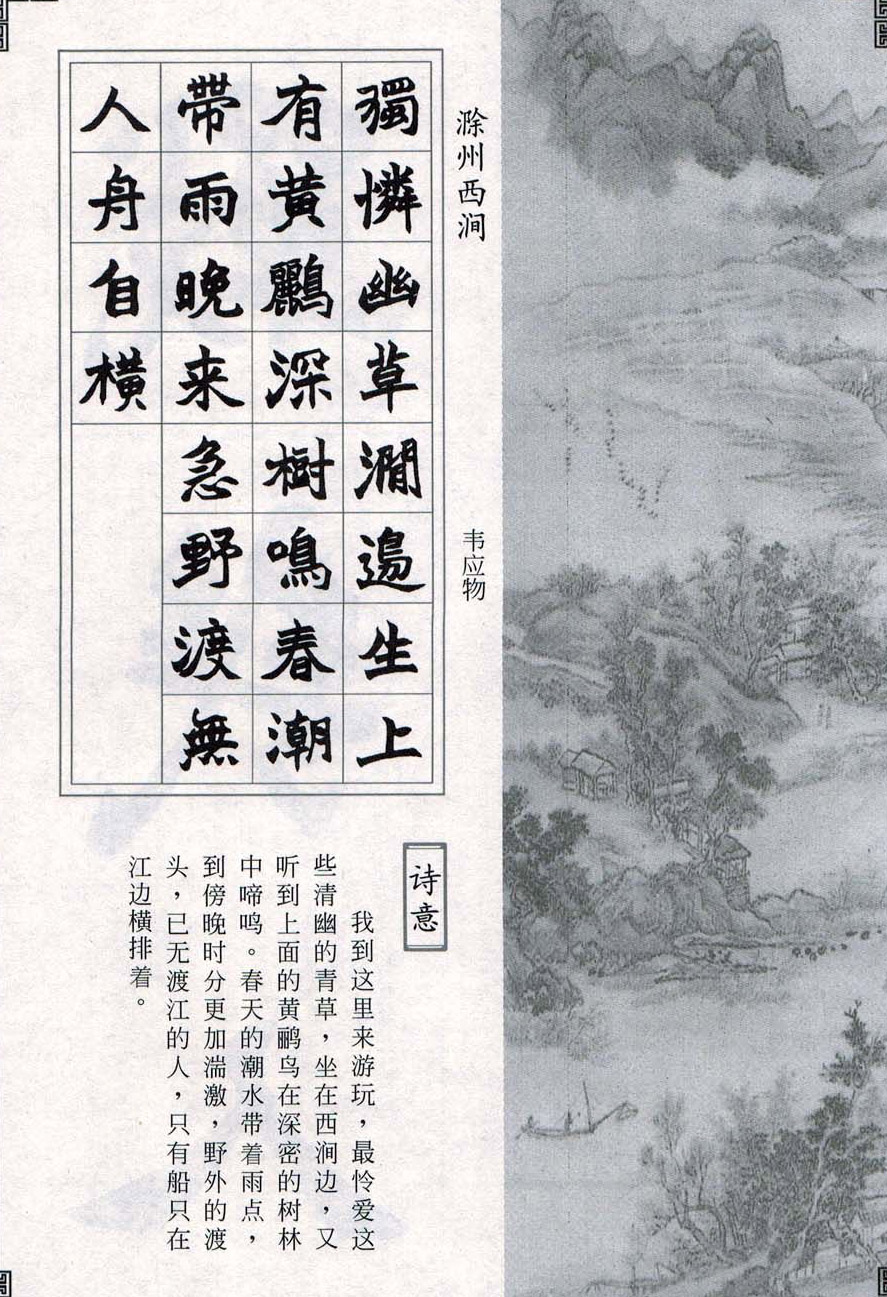 滁州西涧
韦应物
獨憐幽草澗邊生上
有黄鸝深樹鳴春潮
帶雨晚来急野渡無
人舟自橫
诗意
我到这里来游玩，最怜爱这
些清幽的青草，坐在西涧边，又
听到上面的黄鹂鸟在深密的树林
中啼鸣。春天的潮水带着雨点，
到傍晚时分更加湍激，野外的渡
头，已无渡江的人，只有船只在
江边横排着。